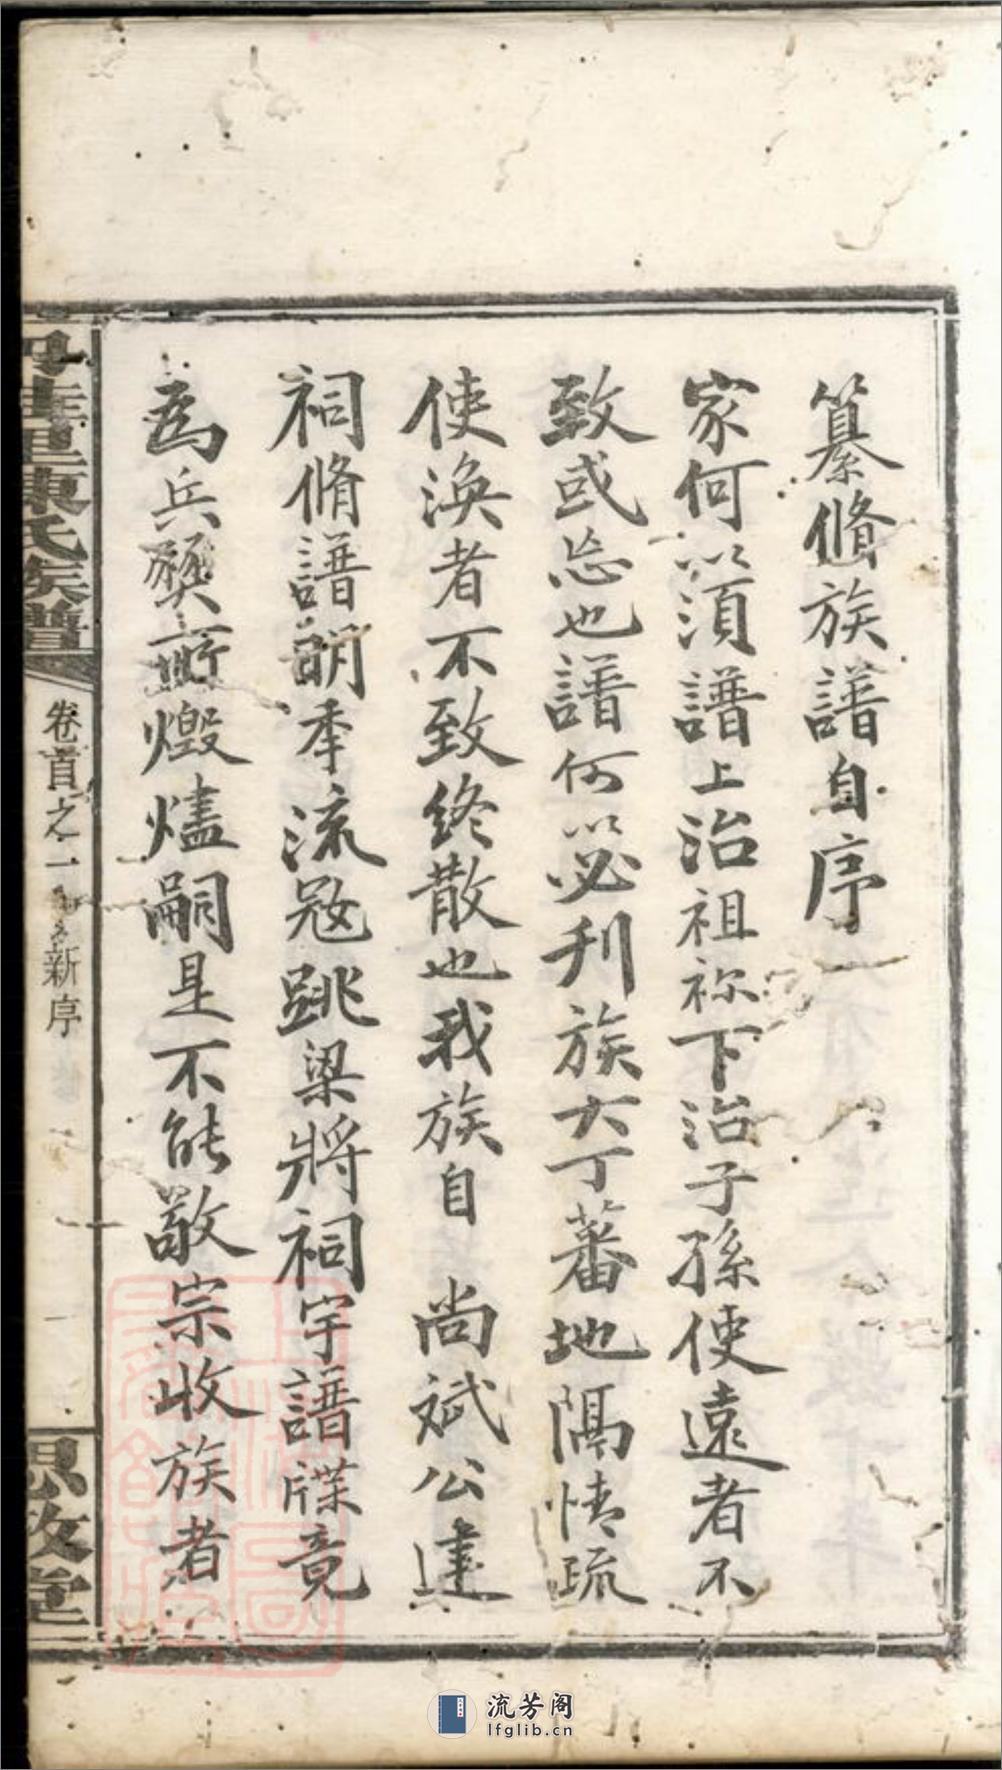 纂脩族譜自序
家何以須譜上治祖祢下治子孫使遠者不
致或忘也譜何以必刋族大丁蕃地隔情疏
使渙者不致終散也我族自 尚斌公建
祠脩譜韵季流冦跳梁將祠宇譜牒竟
為兵燹所燬燼嗣是不能敬宗收族者
陳氏族譜
卷首之一
新序
思敬堂
流芳阁
lfglib.cn